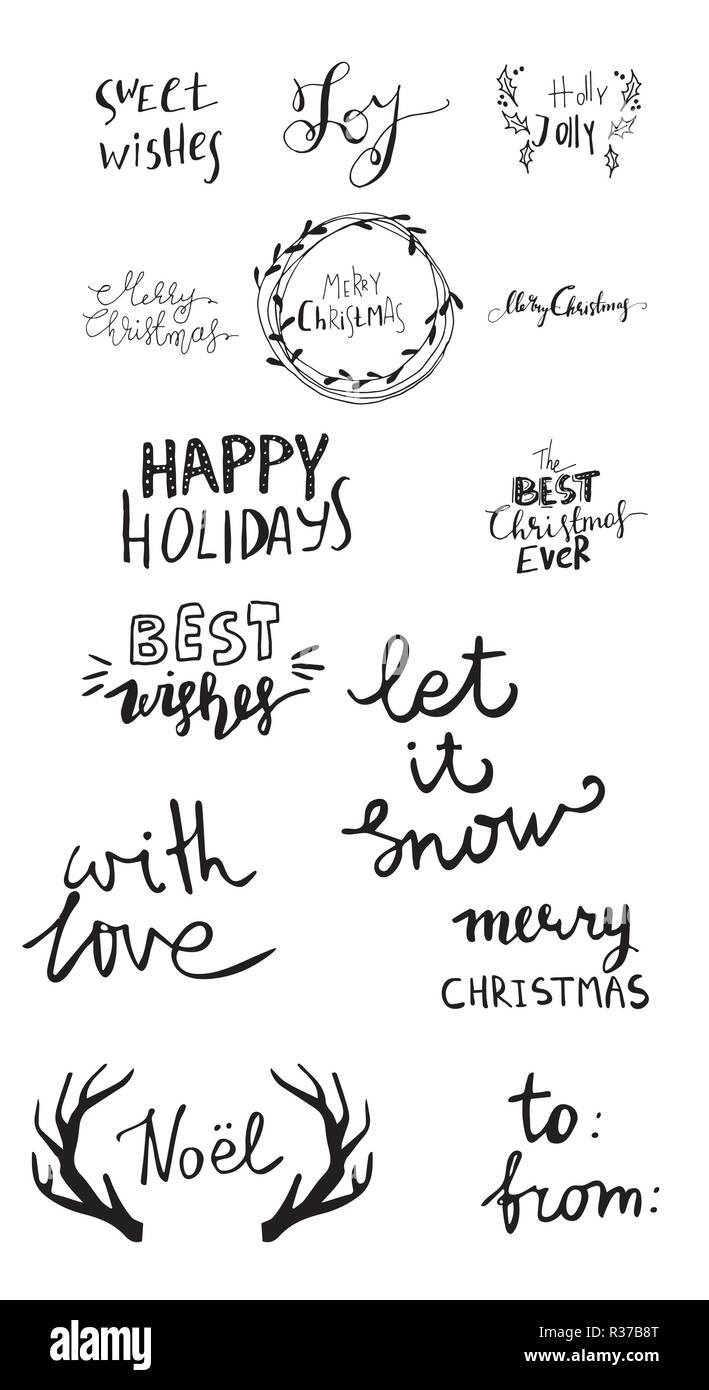 Sweet
wishes
Joy
Holly
Jolly
Merry
Christmas
MERRY
ChRiSTMAS
Merry Christmas
HAPPY
HOLIDAYS
The
BEST
Christmas
EVER
BEST
wishes
let
it
snow
with
love
merry
CHRISTMAS
Noël
to:
from:
alamy
Image ID: R37B8T
www.alamy.com